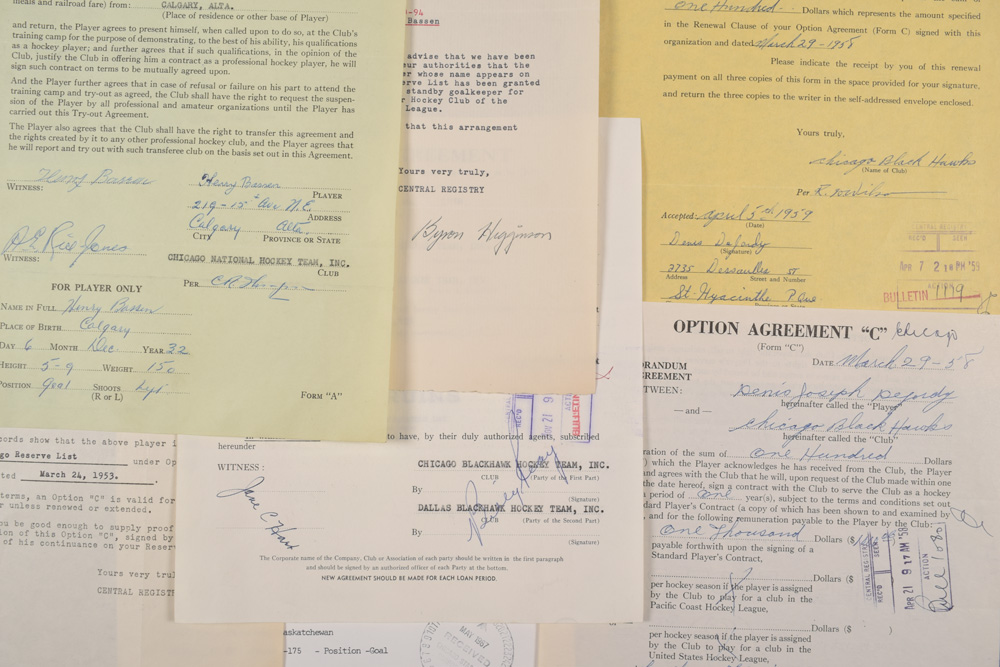 meals and railroad fare) from: CALGARY, ALTA.
(Place of residence or other base of Player)
and return, the Player agrees to present himself, when called upon to do so, at the Club's
training camp for the purpose of demonstrating, to the best of his ability, his qualifications
as a hockey player; and further agrees that if such qualifications, in the opinion of the
Club, justify the Club in offering him a contract as a professional hockey player, he will
sign such contract on terms to be mutually agreed upon.
And the Player further agrees that in case of refusal or failure on his part to attend the
training camp and try-out as agreed, the Club shall have the right to request the suspen-
sion of the Player by all professional and amateur organizations until the Player has
carried out this Try-out Agreement.
The Player also agrees that the Club shall have the right to transfer this agreement and
the rights created by it to any other professional hockey club, and the Player agrees that
he will report and try out with such transferee club on the basis set out in this Agreement.
Henry Bassen
WITNESS:
Henry Bassen
PLAYER
219-15th Ave N.E.
ADDRESS
Calgary Alta.
CITY PROVINCE OR STATE
WITNESS:
CHICAGO NATIONAL HOCKEY TEAM, INC.
CLUB
PER
FOR PLAYER ONLY
NAME IN FULL Henry Bassen
PLACE OF BIRTH Calgary
DAY 6 MONTH Dec. YEAR 32
HEIGHT 5-9 WEIGHT 150
POSITION Goal SHOOTS
(R or L)
FORM "A"
-94
Bassen
advise that we have been
our authorities that the
er whose name appears on
rve List has been granted
standby goalkeeper for
r Hockey Club of the
League.
that this arrangement
Yours very truly,
CENTRAL REGISTRY
Byron Higginson
One Hundred Dollars which represents the amount specified
in the Renewal Clause of your Option Agreement (Form C) signed with this
organization and dated March 29 - 1958
Please indicate the receipt by you of this renewal
payment on all three copies of this form in the space provided for your signature,
and return the three copies to the writer in the self-addressed envelope enclosed.
Yours truly,
Chicago Black Hawks
(Name of Club)
Per R. Wilson
Accepted: April 5th 1959
(Date)
Denis Dejordy
(Signature)
2735 Dessaulles St
Address Street and Number
St. Hyacinthe P. Que
CENTRAL REGISTRY
REC'D SEEN
APR 7 2 10 PM '59
ACTION
BULLETIN 1119
OPTION AGREEMENT "C" Chicago
(Form "C")
DATE March 29-58
ORANDUM
REEMENT
TWEEN:
Denis Joseph Dejordy
hereinafter called the "Player"
— and —
Chicago Black Hawks
hereinafter called the "Club"
ration of the sum of One Hundred Dollars
) which the Player acknowledges he has received from the Club, the Player
and agrees with the Club that he will, upon request of the Club made within one
the date hereof, sign a contract with the Club to serve the Club as a hockey
a period of one year(s), subject to the terms and conditions set out
dard Player's Contract (a copy of which has been shown to and examined by
, and for the following remuneration payable to the Player by the Club:
One Thousand Dollars ($
payable forthwith upon the signing of a
Standard Player's Contract,
Dollars ($
per hockey season if the player is assigned
by the Club to play for a club in the
Pacific Coast Hockey League,
Dollars ($ )
per hockey season if the player is assigned
by the Club to play for a club in the
United States Hockey League,
CENTRAL REGISTRY
REC'D SEEN
APR 21 9 17 AM '58
ACTION
Bull 1080
cords show that the above player i
go Reserve List under Op
ted March 24, 1953.
terms, an Option "C" is valid for
r unless renewed or extended.
ou be good enough to supply proof
ion of this Option "C", signed by
of his continuance on your Reser
Yours very trul
CENTRAL REGIST
to have, by their duly authorized agents, subscribed
hereunder
WITNESS :
CHICAGO BLACKHAWK HOCKEY TEAM, INC.
CLUB (Party of the First Part)
By
(Signature)
DALLAS BLACKHAWK HOCKEY TEAM, INC.
CLUB (Party of the Second Part)
By
(Signature)
The Corporate name of the Company, Club or Association of each party should be written in the first paragraph
and should be signed by an authorized officer of each Party at the bottom.
NEW AGREEMENT SHOULD BE MADE FOR EACH LOAN PERIOD.
REC'D
JAN 21 9
ACTION
BULLETIN
askatchewan
-175 - Position -Goal
MAY 1967
RECEIVED